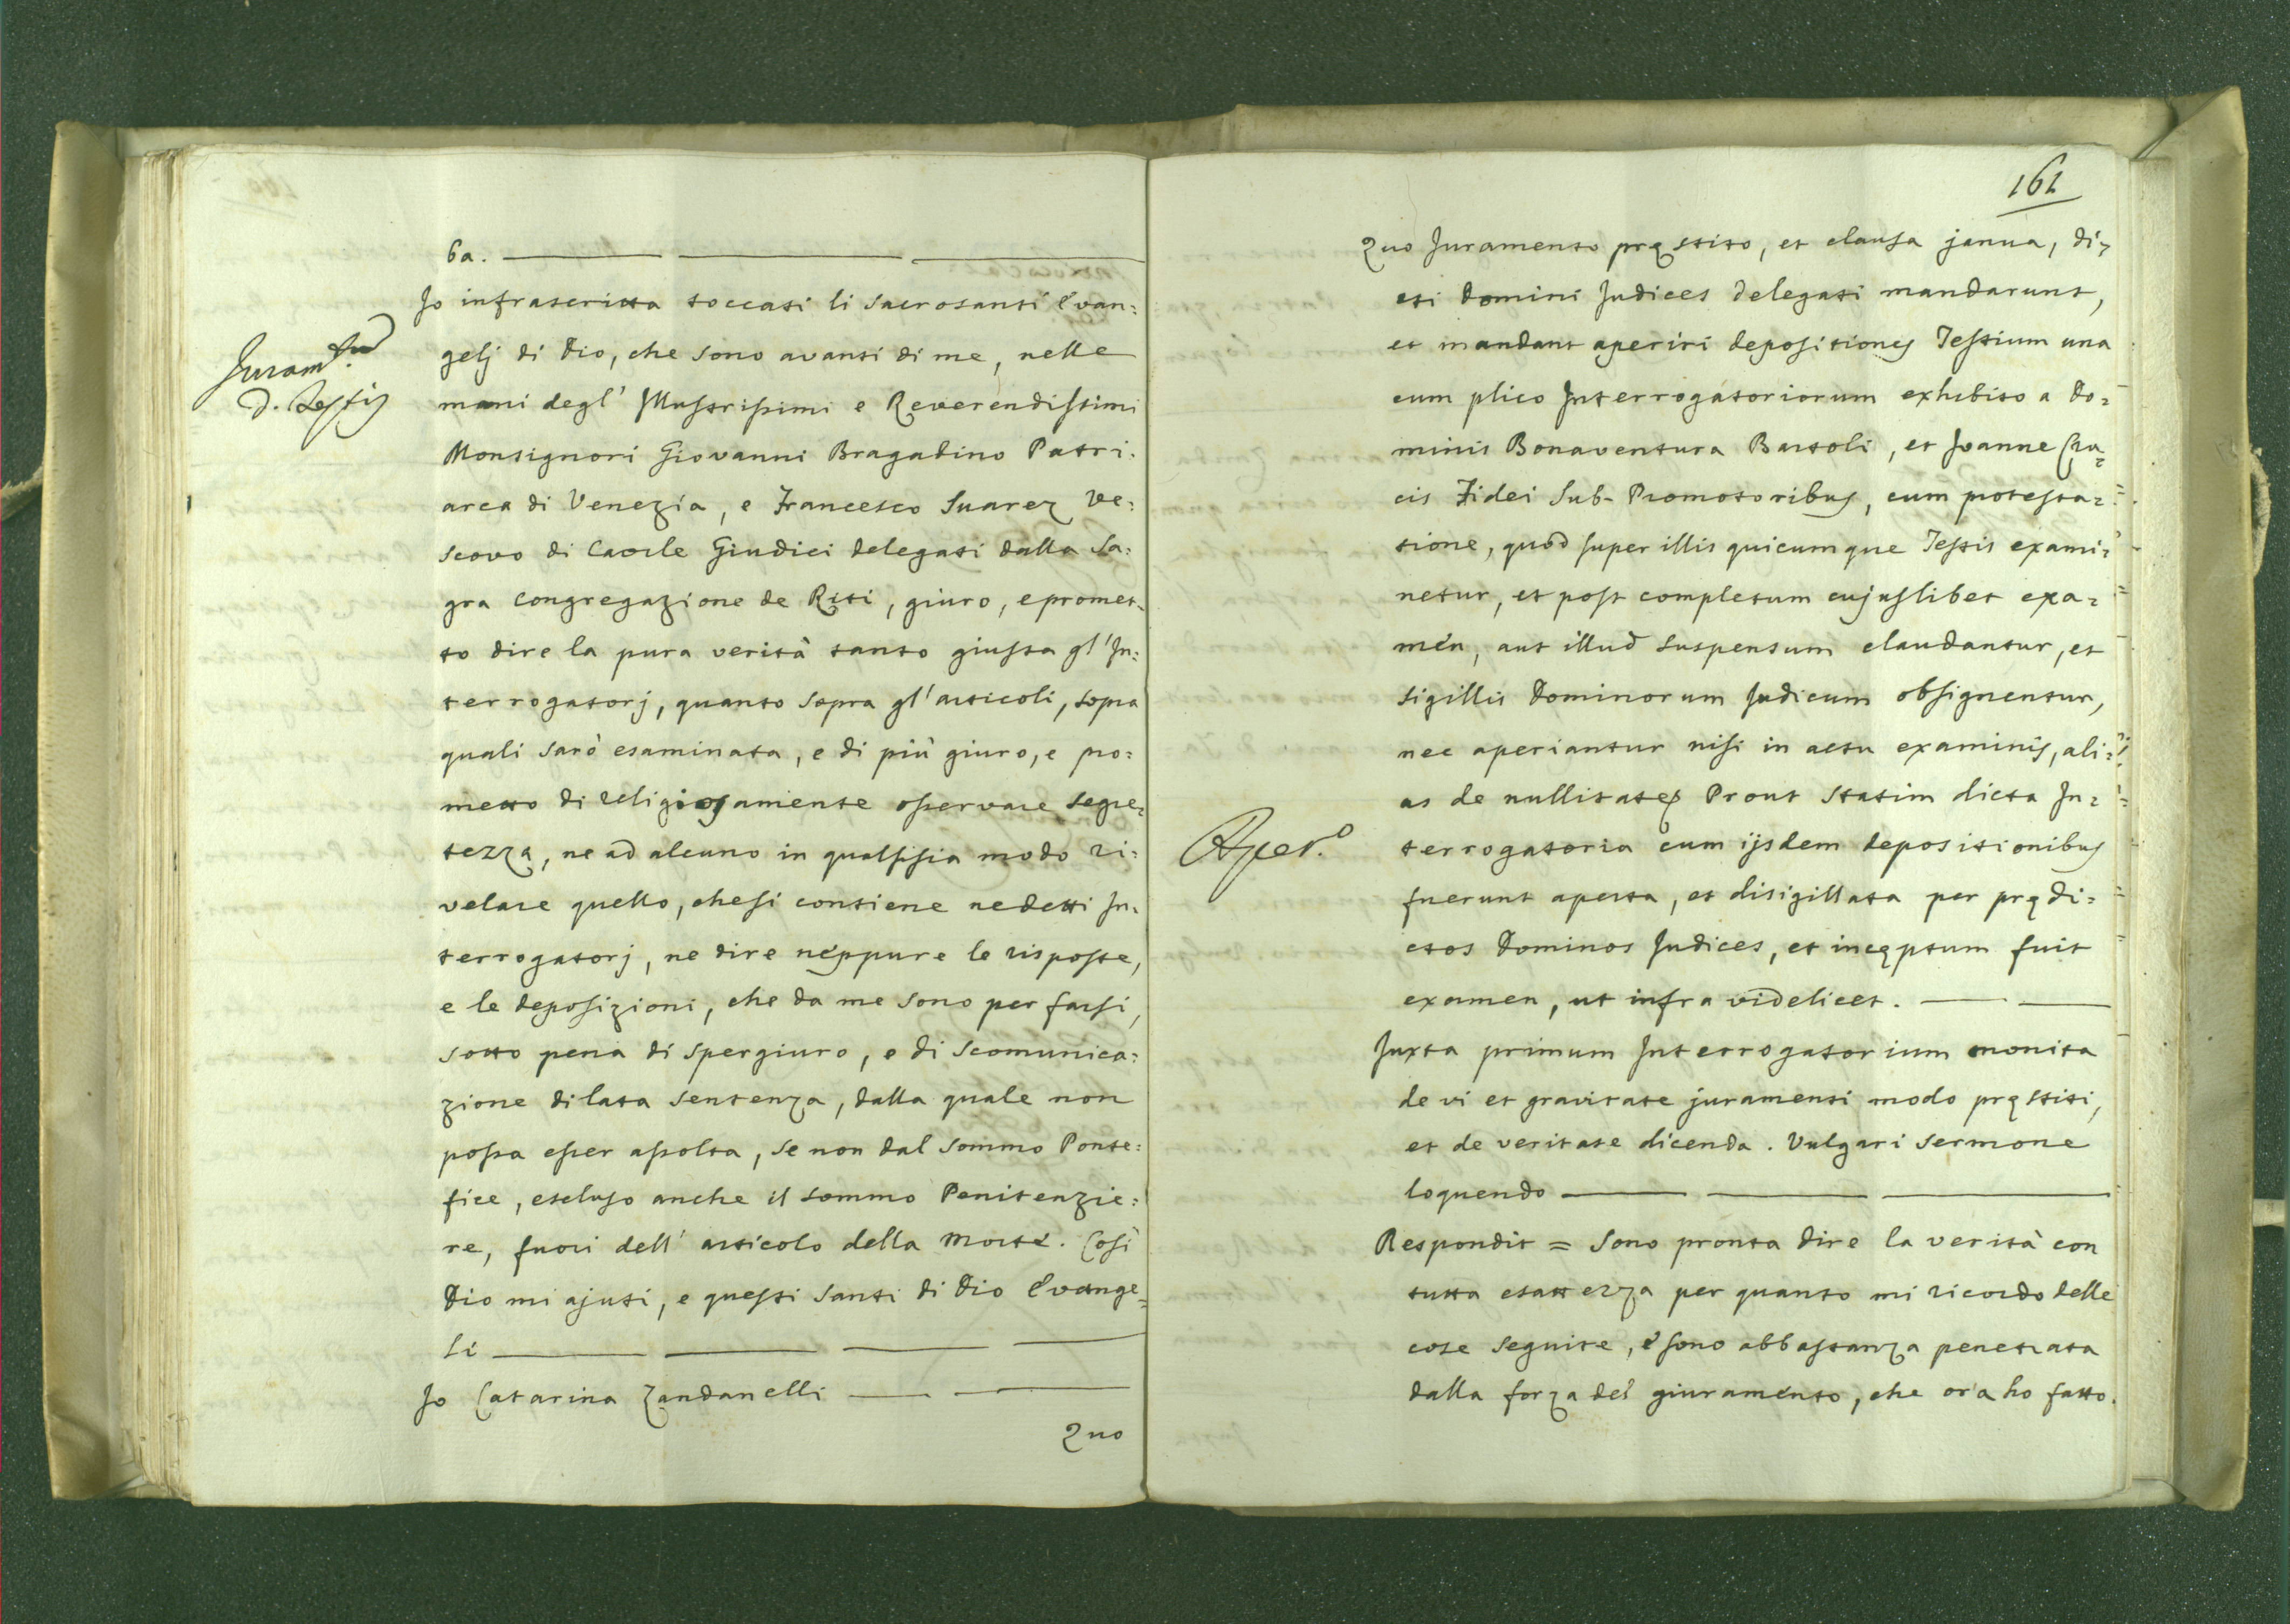 ba.
Io infrascritta toccati li Sacrosanti Evan:
gelj di Dio, che sono avanti di me, nelle
Juram.tum
d. Testis
mani degl' Illustrissimi e Reverendissimi
Monsignori Giovanni Bragadino Patri:
arca di Venezia, e Francesco Suarez Ve:
scovo di Caorle Giudici delegati dalla Sa:
gra Congregazione de Riti, giuro, e promet:
to dire la pura verità tanto giusta gl' In:
terrogatorj, quanto sopra gl' articoli, sopra
quali sarò esaminata, e di più giuro, e pro:
metto di religiosamente osservare segre:
tezza, ne ad alcuno in qualsisia modo ri:
velare quello, che si contiene ne detti In:
terrogatorj, ne dire neppure le risposte,
e le deposizioni, che da me sono per farsi,
sotto pena di spergiuro, e di Scomunica:
zione di lata Sentenza, dalla quale non
possa esser assolta, se non dal Sommo Ponte:
fice, escluso anche il sommo Penitenzie:
re, fuori dell' articolo della Morte. Così
Dio mi ajuti, e questi Santi di Dio Evange:
li
Io Catarina Zandanelli
Quo
161
Quo Juramento pręstito, et clausa janua, di:
cti Domini Judices delegati mandarunt,
et mandant aperiri depositiones Testium una
cum plico Interrogatoriorum exhibito a Do:
minis Bonaventura Bartoli, et Joanne Cru:
cis Fidei Sub-Promotoribus, cum protesta:
tione, quod super illis quicumque Testis exami:
netur, et post completum cujuslibet exa:
men, aut illud suspensum claudantur, et
sigillis Dominorum Judicum obsignentur,
nec aperiantur nisi in actu examinis, ali:
as de nullitate Prout Statim dicta In:
Aper.o
terrogatoria cum ijsdem depositionibus
fuerunt aperta, et disigillata per prędi:
ctos Dominos Judices, et incęptum fuit
examen, ut infra videlicet.
Juxta primum Interrogatorium monita
de vi et gravitate juramenti modo pręstiti,
et de veritate dicenda. Vulgari Sermone
loquendo
Respondit = Sono pronta dire la verità con
tutta esattezza per quanto mi ricordo delle
cose seguite, e sono abbastanza penetrata
dalla forza del giuramento, che ora ho fatto.